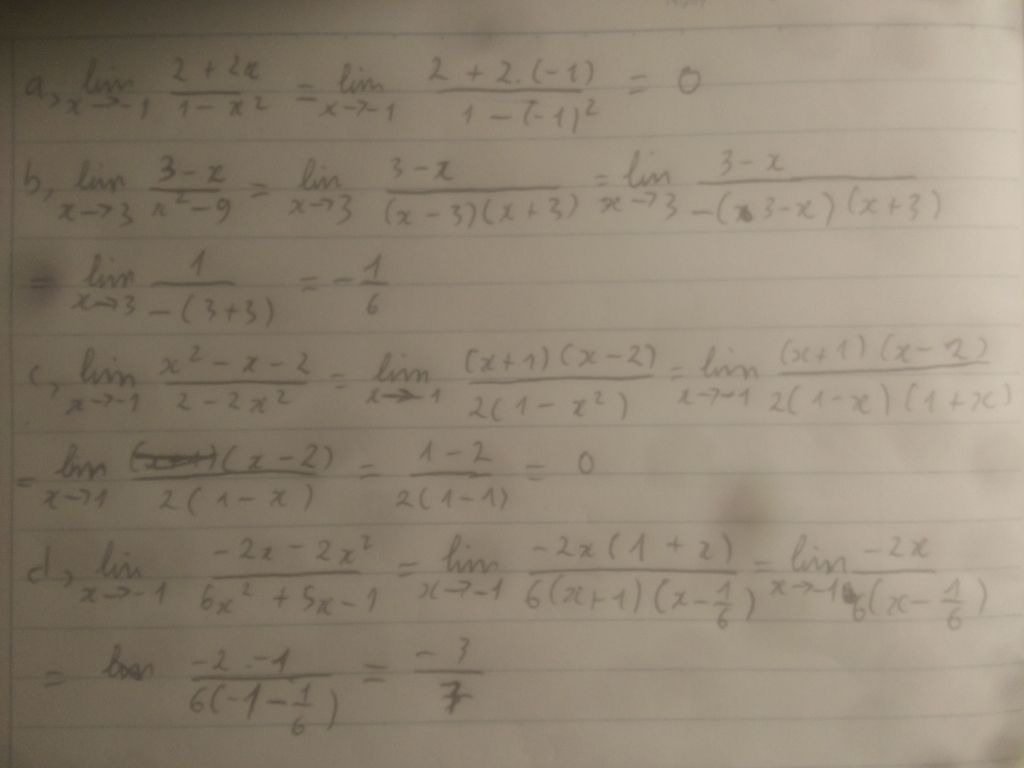 a, lim x→-1 (2 + 2x)/(1 - x²) = lim x→-1 (2 + 2.(-1))/(1 - (-1)²) = 0
b, lim x→3 (3 - x)/(x² - 9) = lim x→3 (3 - x)/((x - 3)(x + 3)) = lim x→3 (3 - x)/(-(3 - x)(x + 3))
= lim x→3 1/(-(3+3)) = -1/6
c, lim x→-1 (x² - x - 2)/(2 - 2x²) = lim x→-1 ((x+1)(x-2))/(2(1 - x²)) = lim x→-1 ((x+1)(x-2))/(2(1-x)(1+x))
= lim x→1 (x - 2)/(2(1 - x)) = (1 - 2)/(2(1 - 1)) = 0
d, lim x→-1 (-2x - 2x²)/(6x² + 5x - 1) = lim x→-1 (-2x(1 + x))/(6(x+1)(x - 1/6)) = lim x→-1 (-2x)/(6(x - 1/6))
= lim (-2 . -1)/(6(-1 - 1/6)) = -3/7